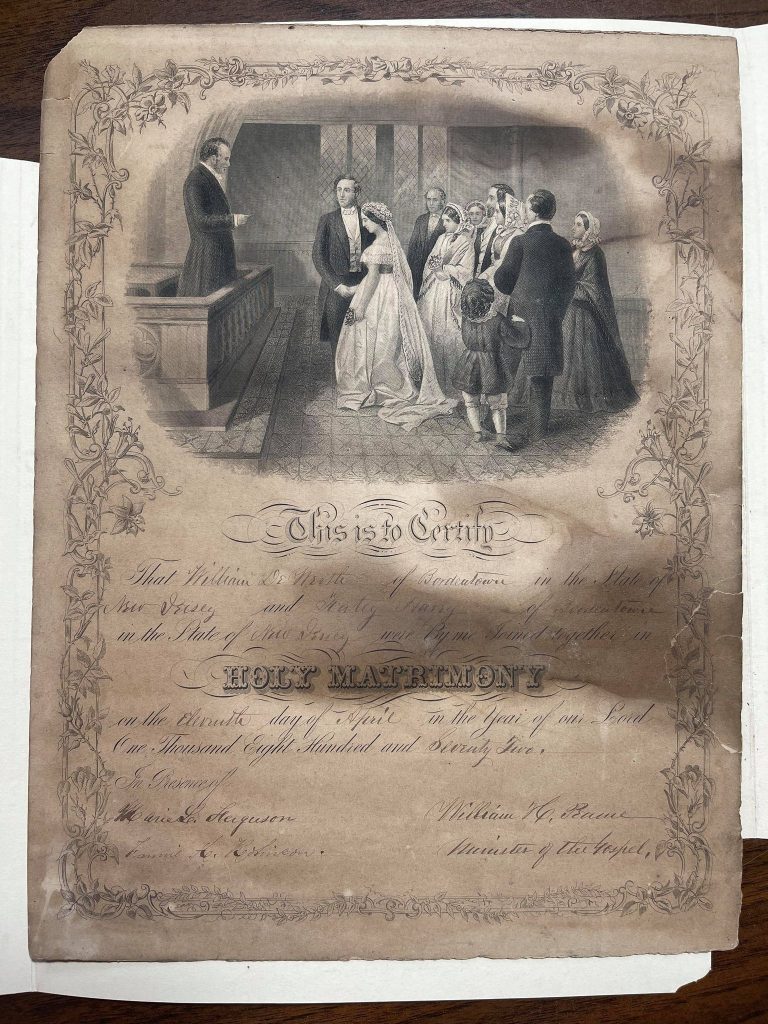 This is to Certify
That William De Worth of Bordentown in the State of
New Jersey and of Bordentown
in the State of New Jersey were by me Joined together in
HOLY MATRIMONY
on the Eleventh day of April in the Year of our Lord
One Thousand Eight Hundred and Seventy Five.
In Presence of
Marie L. Ferguson
William H.
A. Robinson.
Minister of the Gospel.